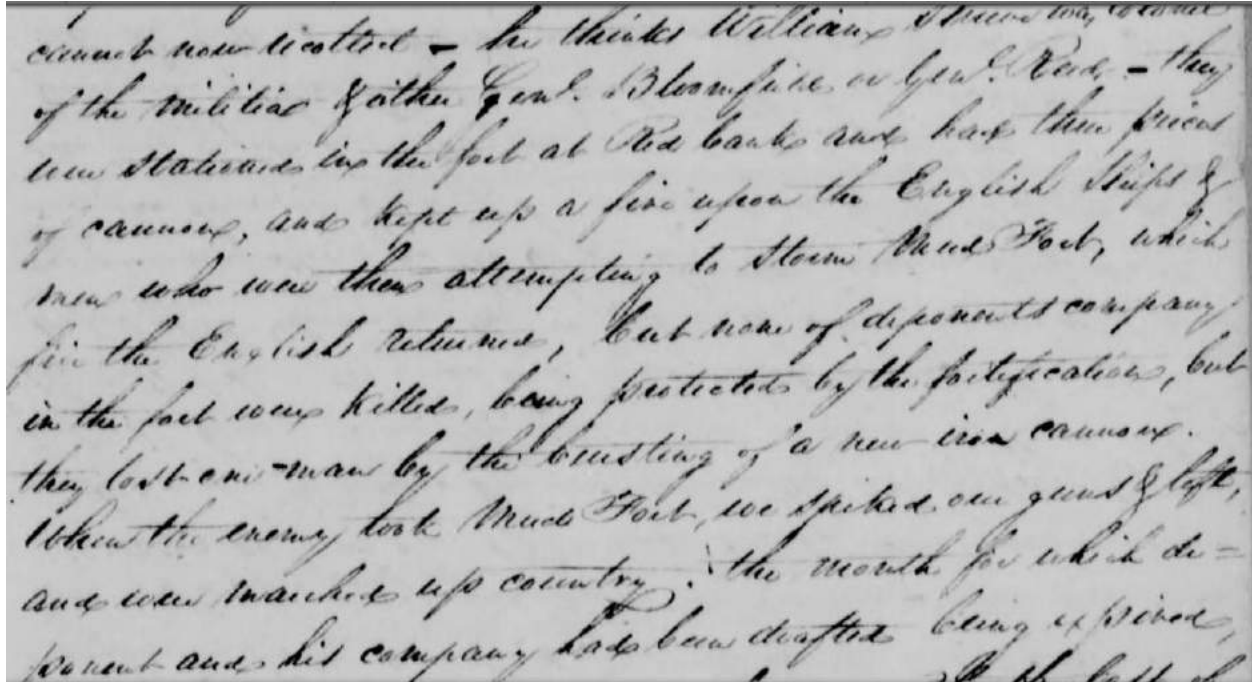 cannot now recollect – he thinks William was Colonel
of the militia & either Genl. Bloomfield or Genl. Read, – they
were stationed in the fort at Red bank and had three pieces
of cannon, and kept up a fire upon the English Ships &
men who were then attempting to storm Mud Fort, which
fire the English returned, but none of deponents company
in the fort were killed, being protected by the fortification, but
they lost one man by the bursting of a new iron cannon.
When the enemy took Mud Fort, we spiked our guns & left,
and were marched up country. the month for which de=
ponent and his company had been drafted being expired,